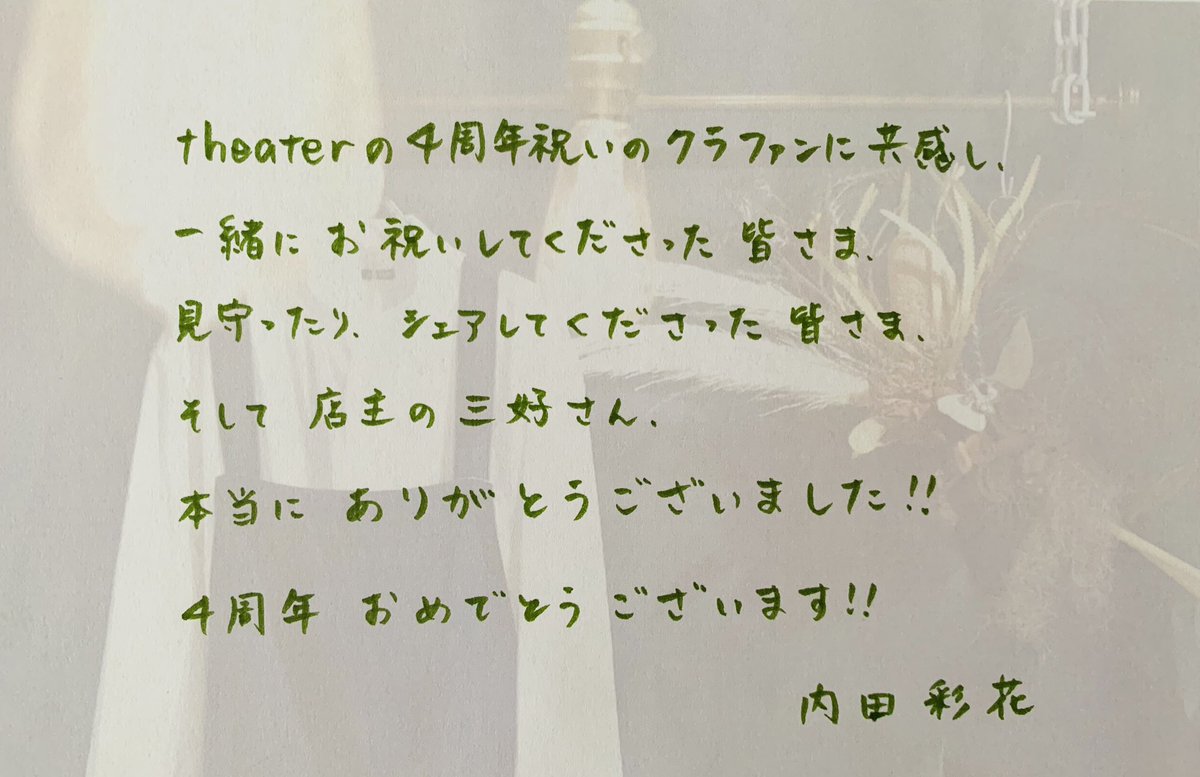 theaterの4周年祝いのクラファンに共感し、
一緒にお祝いしてくださった皆さま、
見守ったり、シェアしてくださった皆さま、
そして店主の三好さん、
本当にありがとうございました!!
4周年おめでとうございます!!
内田彩花